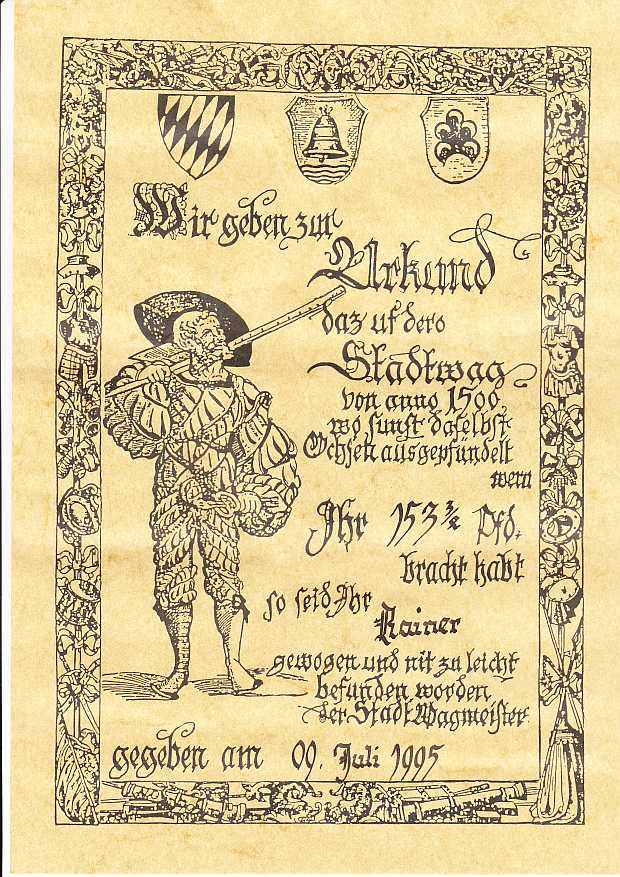 Wir geben zur
Urkund
daz uf dero
Stadtwag
von anno 1500,
wo sunst daselbst
Ochsen ausgepfündelt
wern
Ihr 153 ¾ Pfd.
bracht habt
so seid Ihr
Rainer
gewogen und nit zu leicht
befunden worden
der Stadt Wagmeister
gegeben am 09. Juli 1995